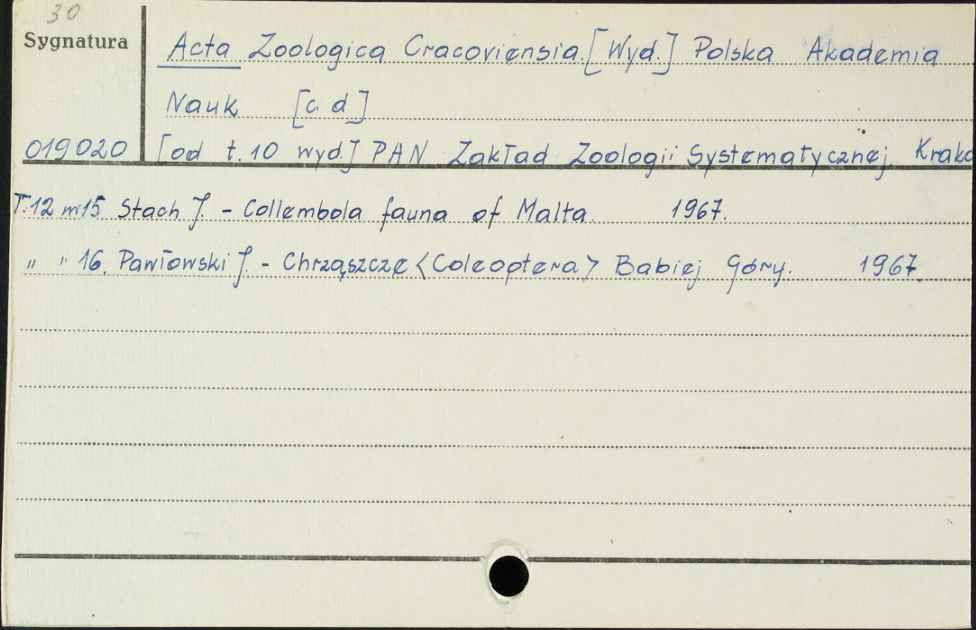 30
Sygnatura
Acta Zoologica Cracoviensia. [Wyd.] Polska Akademia
Nauk [c. d]
019020 [od t. 10 wyd.] PAN Zakład Zoologii Systematycznej Krako
T. 12 nr 15 Stach J. - Collembola fauna of Malta. 1967.
" " 16. Pawłowski J. - Chrząszcze <Coleoptera> Babiej Góry. 1967.